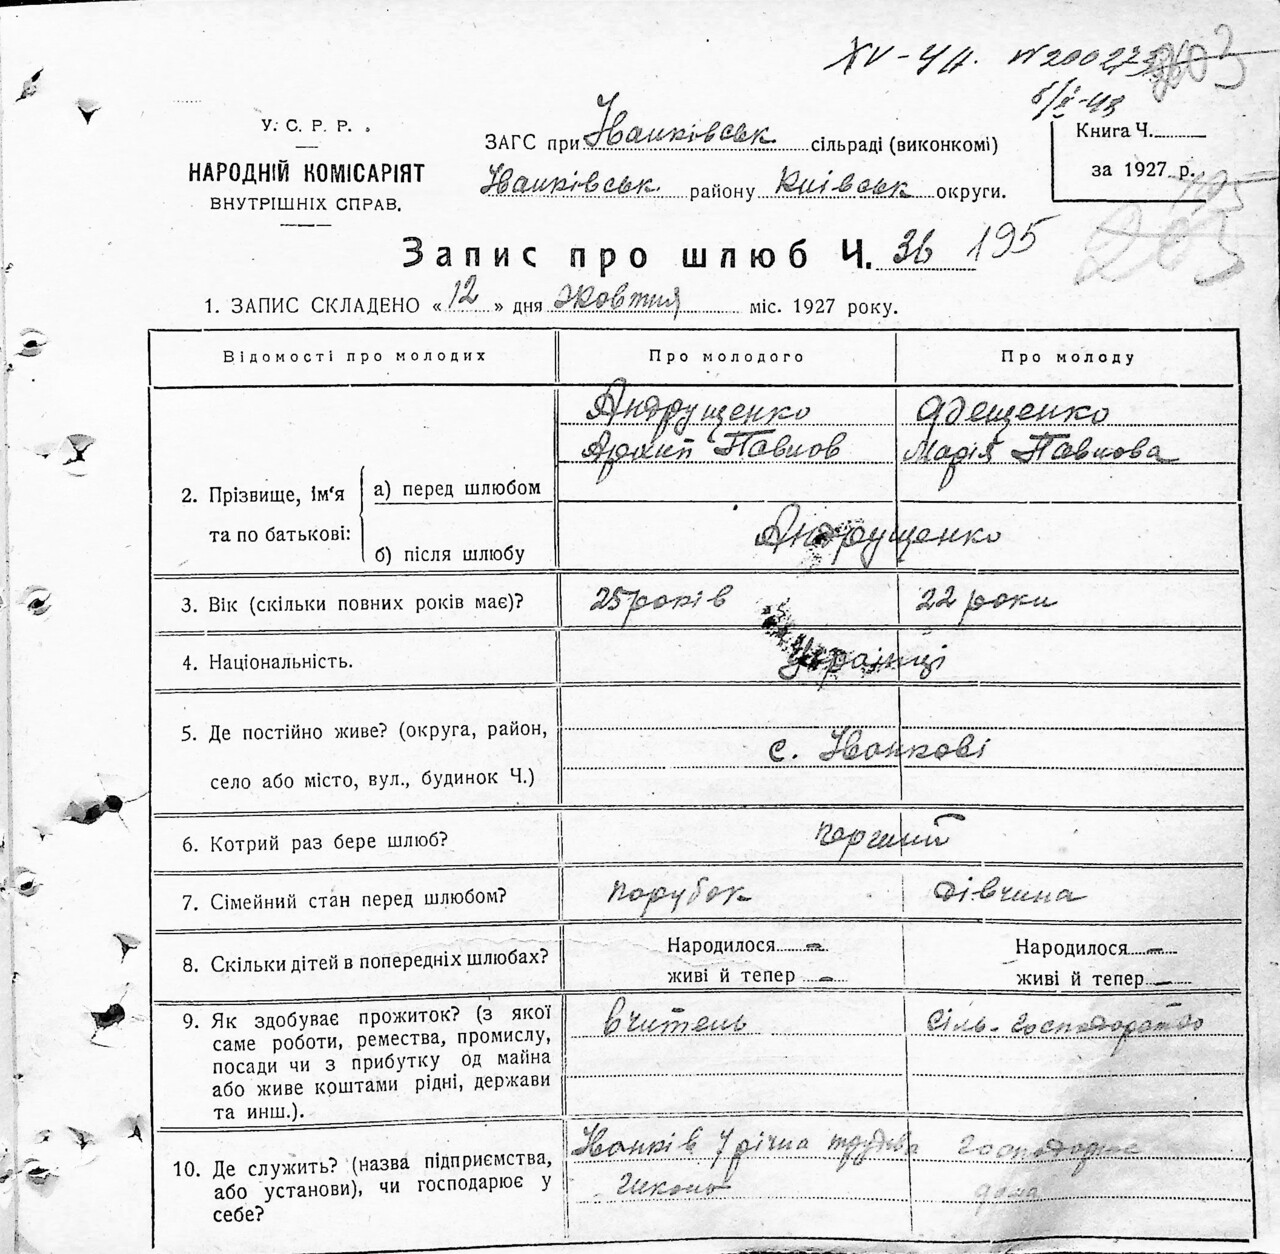 XV-УД. №200273
203
6/II-43
У. С. Р. Р.
НАРОДНІЙ КОМІСАРІЯТ
ВНУТРІШНІХ СПРАВ.
ЗАГС при Іванківськ сільраді (виконкомі)
Іванківськ. району Київськ округи.
Книга Ч.
за 1927 р.
195
203
Запис про шлюб Ч. 36 195
1. ЗАПИС СКЛАДЕНО « 12 » дня жовтня міс. 1927 року.
Відомості про молодих Про молодого Про молоду
Андрущенко Ядещенко
Архип Павлов Марія Павлова
2. Прізвище, ім'я та по батькові:
а) перед шлюбом
б) після шлюбу
Андрущенко
3. Вік (скільки повних років має)? 25 років 22 роки
4. Національність. Українці
5. Де постійно живе? (округа, район,
село або місто, вул., будинок Ч.)
с. Іванкові
6. Котрий раз бере шлюб? перший
7. Сімейний стан перед шлюбом? парубок дівчина
8. Скільки дітей в попередніх шлюбах?
Народилося - Народилося -
живі й тепер - живі й тепер -
9. Як здобуває прожиток? (з якої вчитель сіль-господарство
саме роботи, ремества, промислу,
посади чи з прибутку од майна
або живе коштами рідні, держави
та инш.).
10. Де служить? (назва підприємства,
або установи), чи господарює у
себе?
Іванків 7 річна трудова
школа
дома